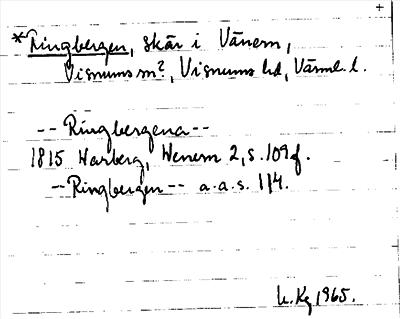 +
*Ringbergen, skär i Vänern,
Visnums sn?, Visnums hd, Värml. l.
-- Ringbergena --
1815 Warberg, Wenern 2, s. 109 f.
-- Ringbergen -- a.a.s. 114.
1965.